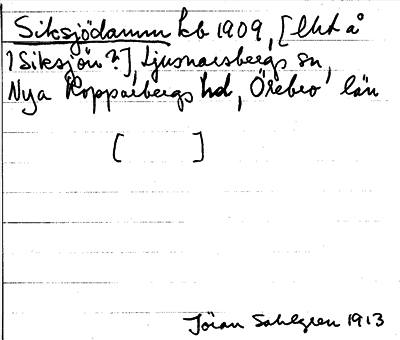 Siksjödamm kb 1909, [lht å
1 Siksjön?], Ljusnarsbergs sn,
Nya Kopparbergs hd, Örebro län
[ ]
Jöran Sahlgren 1913